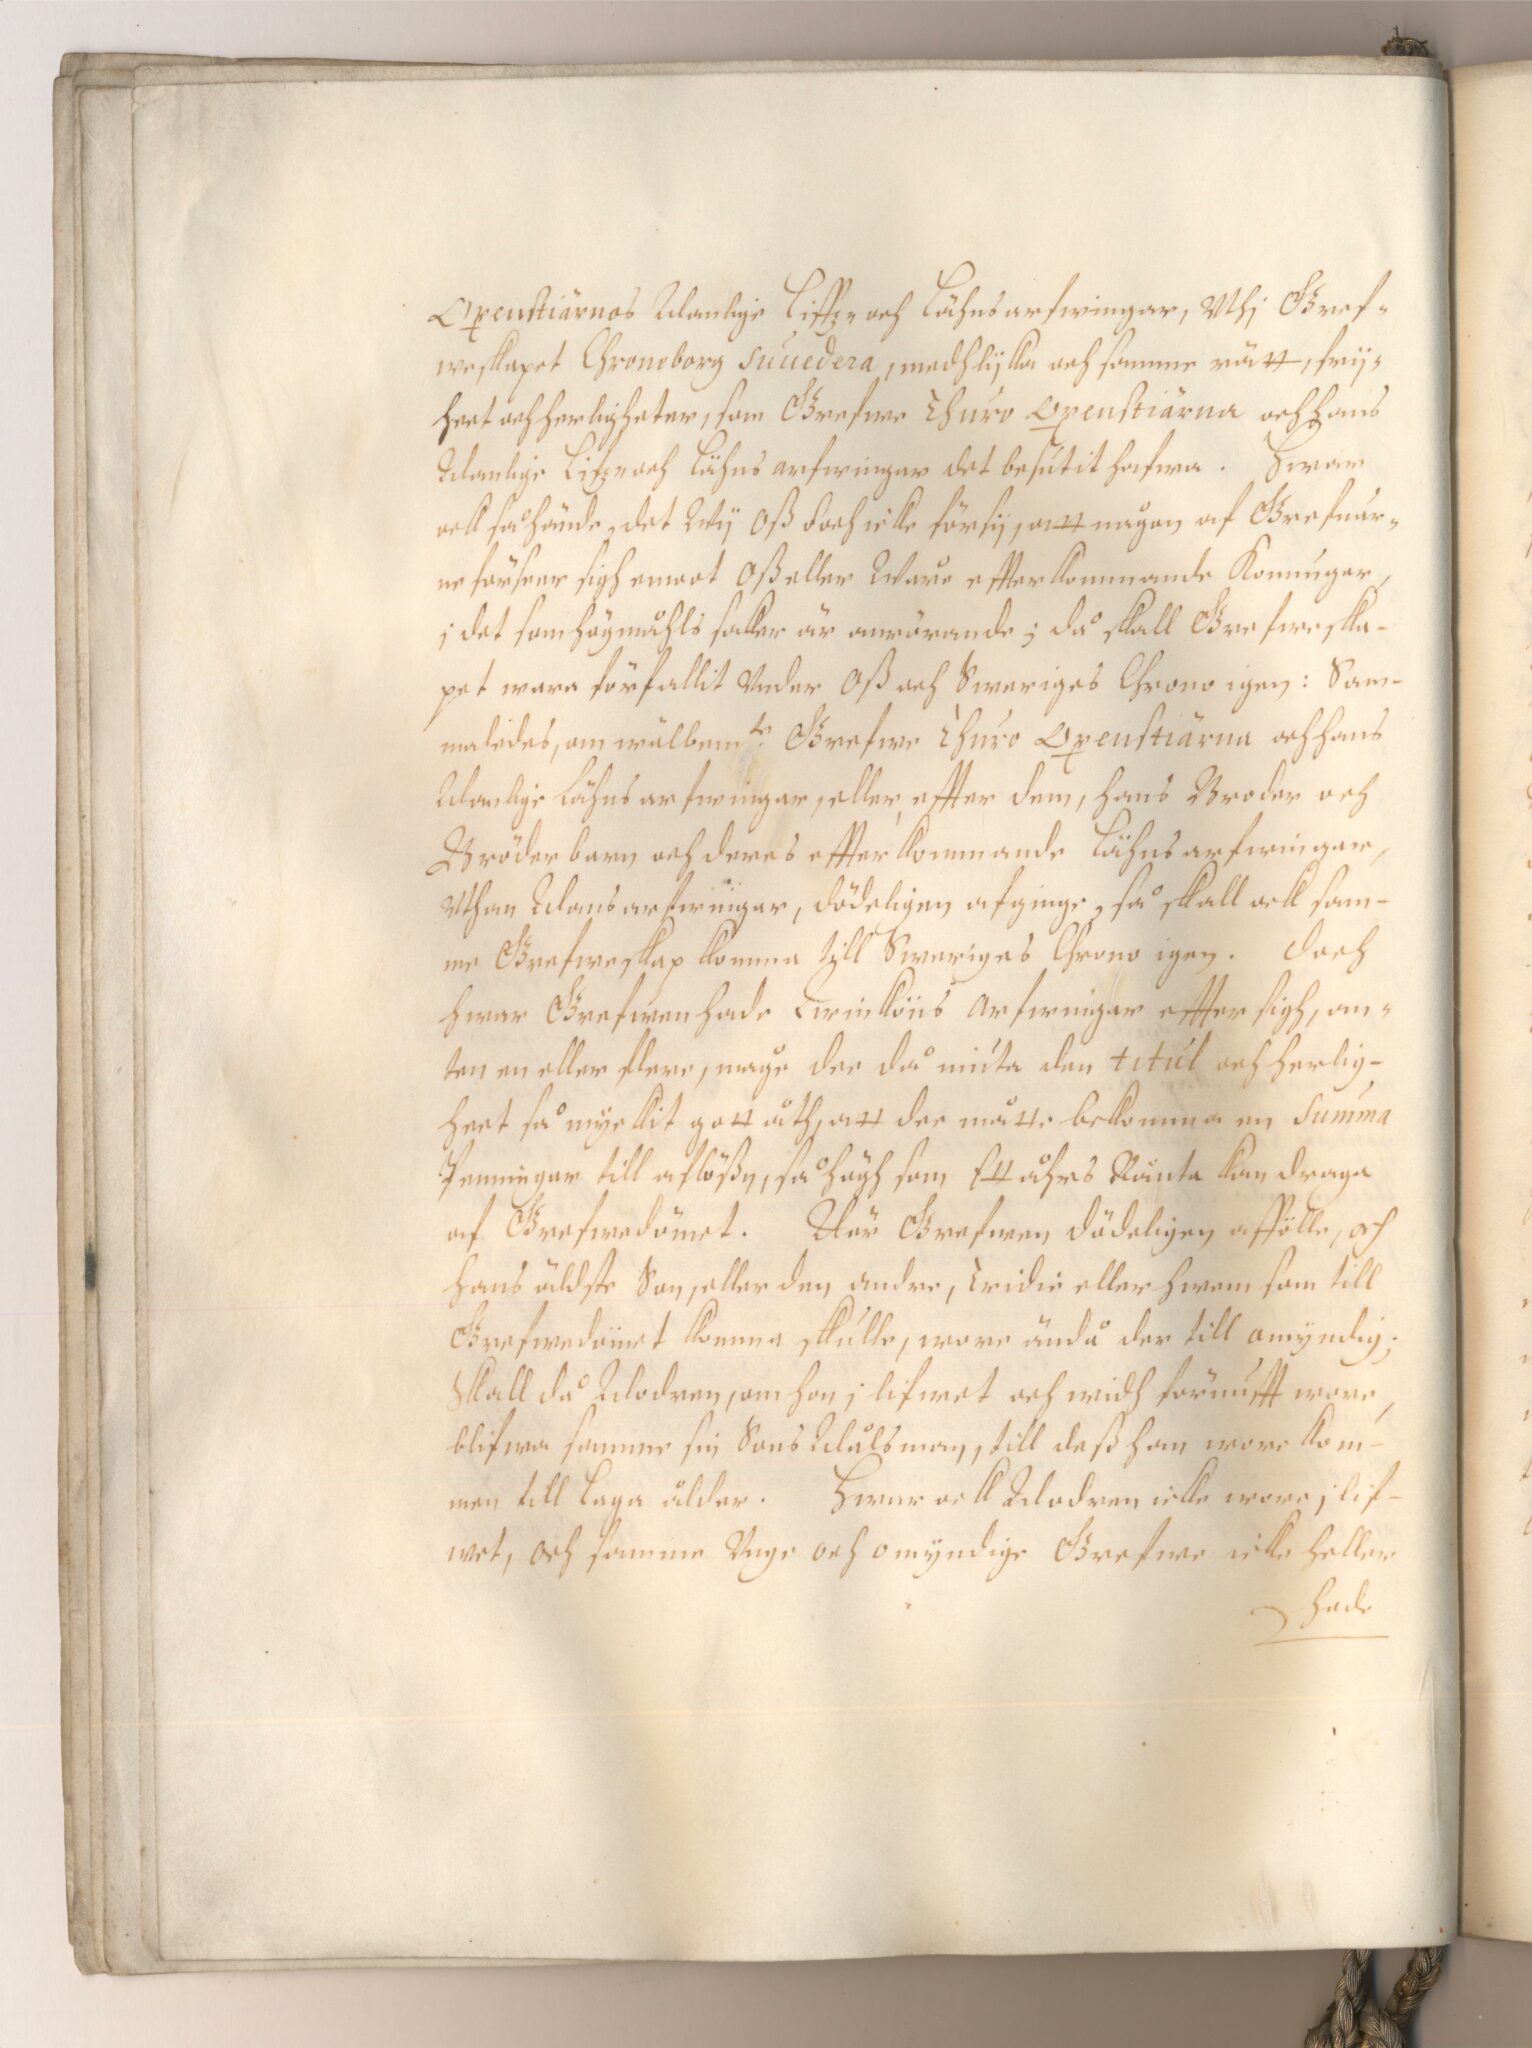 Oxenstiärnas Manlige Liffz- och Lähnsarfwingar, Vthi Gref-
weskapet Croneborg succedera, medh lijka och samme rätt, frij-
heet och herligheeter, som Grefwe Thuro Oxenstiärna och hans
Manlige Lifz- och Lähns arfwingar det besutit hafwa. Hwar
ock så hände, det Wij Oß doch icke försij, att någon af Grefwar-
ne förseer sigh emoot Oß eller Wåre effterkommande Konungar,
j det som högmåhls saker är anrörande; då skall Grefweska-
pet wara förfallit Vnder Oß och Sweriges Chrono igen: Sam-
maledes, om wälbem:te Grefwe Thuro Oxenstiärna och hans
Manlige Lähnsarfwingar, eller, effter dem, hans Broder och
Bröderbarn och deres effterkommande Lähnsarfwingar,
Vthan Mansarfwingar, dödeligen afginge, så skall ock sam-
me Grefweskap komma till Sweriges Chrono igen. Doch
hwar Grefwen hade Qwinköns Arfwingar effter sigh, an-
ten en eller flere, mage dee då niuta den titul och herlig-
heet så myckit gott åth, att dee måtte bekomma en Summa
Penningar till aflößn, så högh som Ett åhrs Ränta kan draga
af Grefwedömet. När Grefwen dödeligen affölle, och
hans äldste Son, eller den andre, Tridie eller hwem som till
Grefwedömet komma skulle, wore ändå der till omyndig;
Skall då Modren, om hon j lifwet och widh förnufft wore,
blifwa samme sin Sons Målsman, till deß han wore kom-
men till Laga ålder. Hwar ock Modren icke wore j lif-
wet, och samme Vnge och omyndige Grefwe icke heller
hade